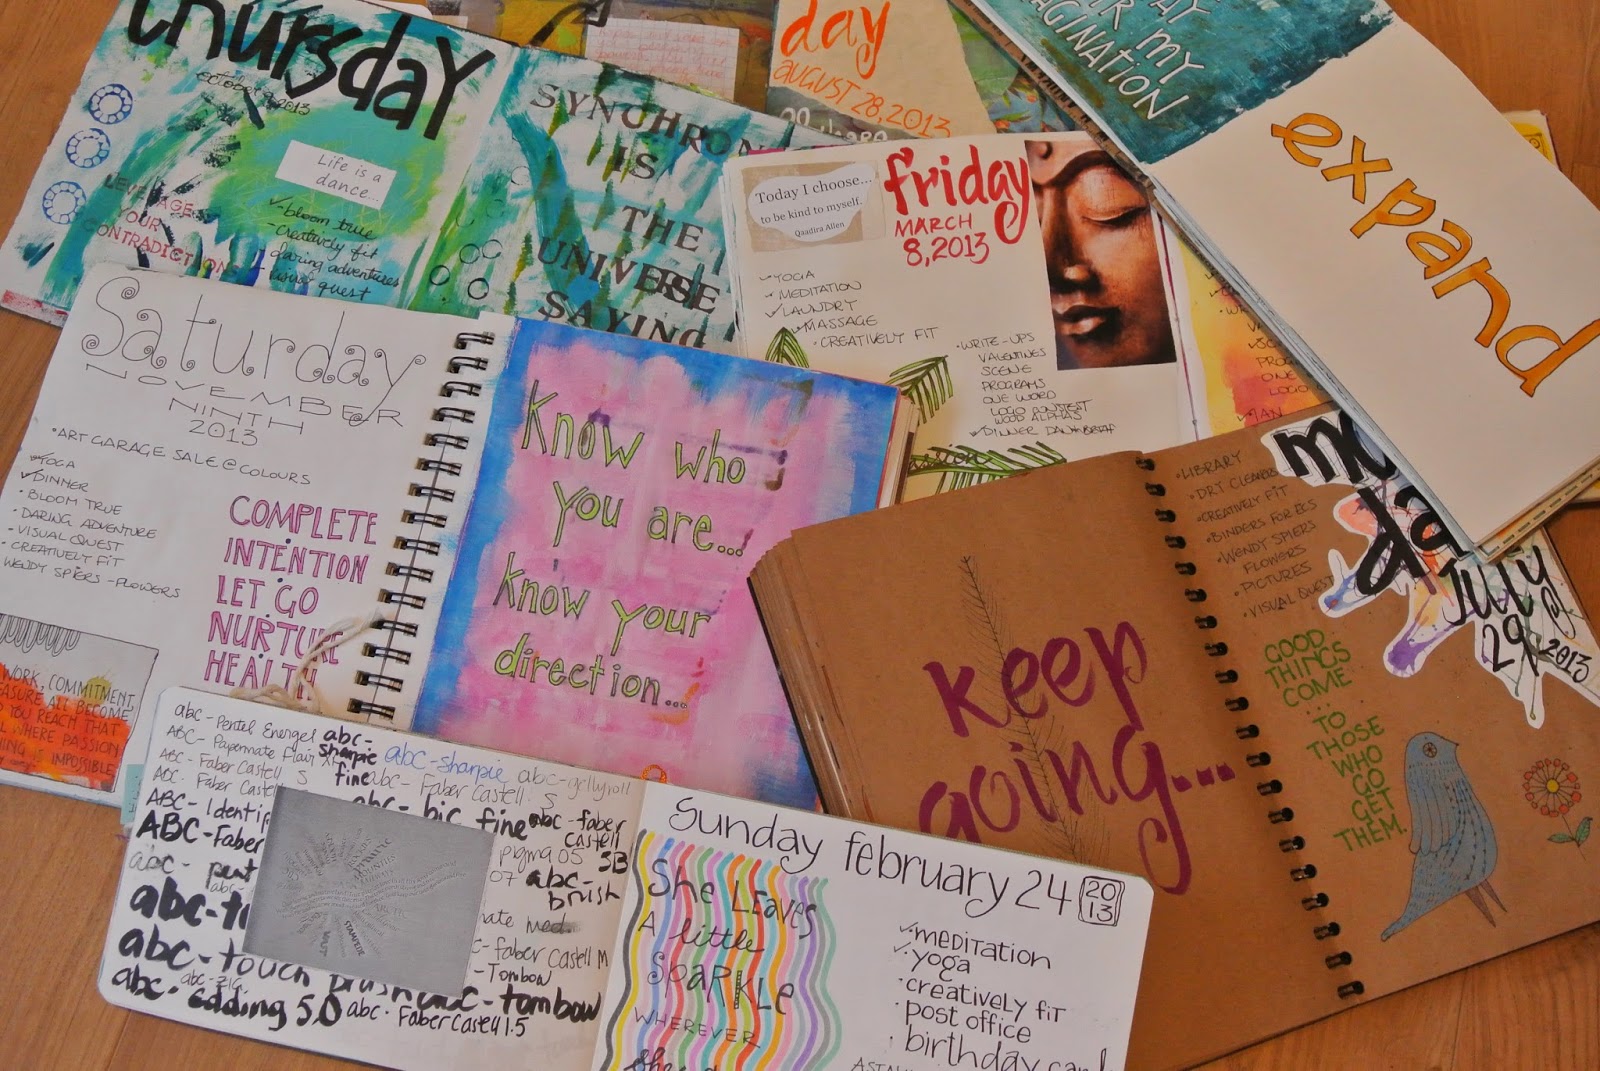 thursday
october 9, 2013
Life is a
dance...
bloom true
- creatively fit
daring adventures
visual quest
LEVERAGE
YOUR
CONTRADICTIONS
SYNCHRON
IS
THE
UNIVERSE
SAYING
day
AUGUST 28, 2013
MY
IMAGINATION
expand
Today I choose...
to be kind to myself.
Qaadira Allen
friday
MARCH
8, 2013
YOGA
MEDITATION
LAUNDRY
MASSAGE
CREATIVELY FIT
WRITE-UPS
VALENTINES
SCENE
PROGRAMS
ONE WORD
LOGO CONTEST
WOOD ALPHAS
DINNER
Saturday
NOVEMBER
NINTH
2013
• ART GARAGE SALE @ COLOURS
YOGA
DINNER
• BLOOM TRUE
• DARING ADVENTURE
• VISUAL QUEST
• CREATIVELY FIT
WENDY SPIERS - FLOWERS
COMPLETE
INTENTION
LET GO
NURTURE
HEALTH
WORK, COMMITMENT,
ALL BECOME
YOU REACH THAT
WHERE PASSION
IS IMPOSSIBLE
Know who
you are...
know your
direction...
keep
going...
• LIBRARY
• DRY CLEANER
• CREATIVELY FIT
• BINDERS FOR ECS
• WENDY SPIERS
FLOWERS
• PICTURES
• VISUAL QUEST
mo
da
July
29 2013
GOOD
THINGS
COME
...
TO
THOSE
WHO
GO
GET
THEM.
abc - Pentel Energel
ABC - Papermate Flair
ABC - Faber Castell S
ABC. Faber Castell
ABC - Identi
ABC - Faber
abc - pent
abc -
abc - touch brush
abc - ZIG.
abc - edding 5.0
abc - sharpie fine
abc - sharpie
abc - gellyroll
abc - Faber Castell. S
abc - big fine
abc - faber
castell
SB
pigma 05
07
abc -
brush
med.
- Faber Castell M
- Tombow
abc - tombow
abc - Faber Castell 1.5
STAMPEDE
Sunday february 24 2013
She LEAVES
A little
SPARKLE
WHEREVER
She
meditation
yoga
• creatively fit
• post office
• birthday card